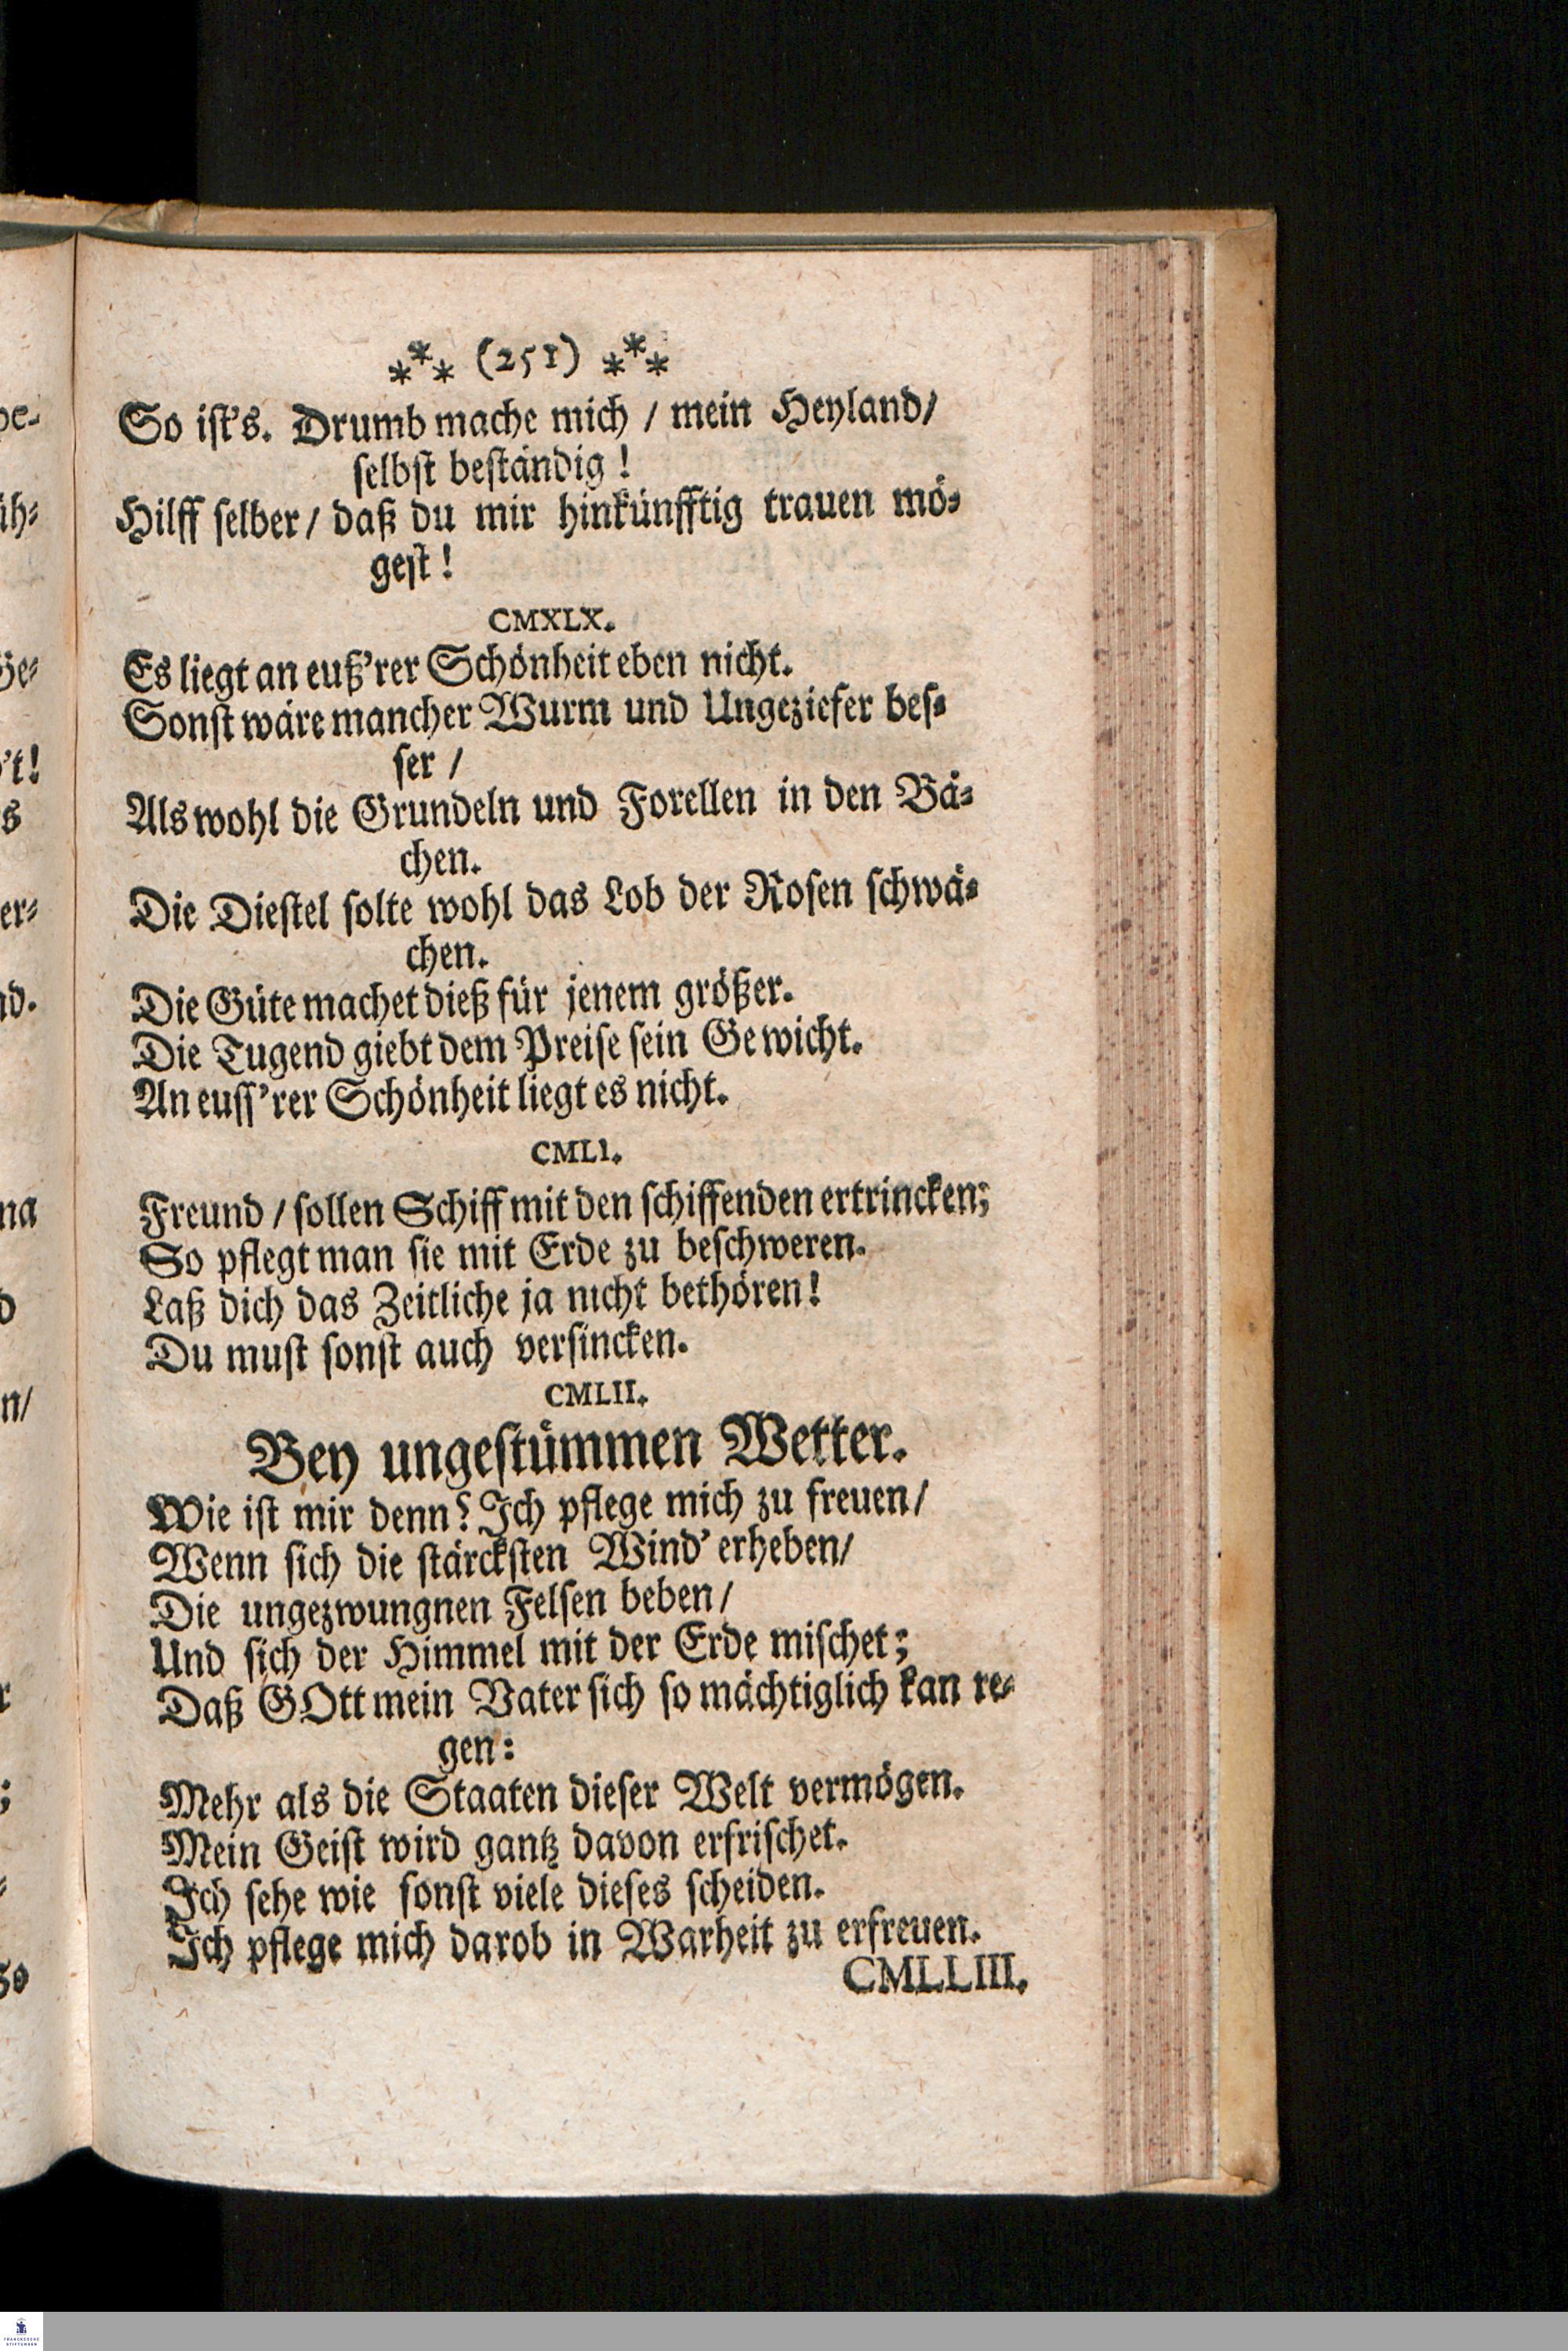 ⁂ (251) ⁂
So ist's. Drumb mache mich / mein Heyland/
selbst beständig!
Hilff selber / daß du mir hinkünfftig trauen mö-
gest!
CMXLX.
Es liegt an euß'rer Schönheit eben nicht.
Sonst wäre mancher Wurm und Ungeziefer bes-
ser /
Als wohl die Grundeln und Forellen in den Bä-
chen.
Die Diestel solte wohl das Lob der Rosen schwä-
chen.
Die Güte machet dieß für jenem größer.
Die Tugend giebt dem Preise sein Gewicht.
An euss'rer Schönheit liegt es nicht.
CMLI.
Freund / sollen Schiff mit den schiffenden ertrincken;
So pflegt man sie mit Erde zu beschweren.
Laß dich das Zeitliche ja nicht bethören!
Du must sonst auch versincken.
CMLII.
Bey ungestümmen Wetter.
Wie ist mir denn? Ich pflege mich zu freuen/
Wenn sich die stärcksten Wind' erheben/
Die ungezwungnen Felsen beben/
Und sich der Himmel mit der Erde mischet;
Daß GOtt mein Vater sich so mächtiglich kan re-
gen:
Mehr als die Staaten dieser Welt vermögen.
Mein Geist wird gantz davon erfrischet.
Ich sehe wie sonst viele dieses scheiden.
Ich pflege mich darob in Warheit zu erfreuen.
CMLLIII.
FRANCKESCHE
STIFTUNGEN